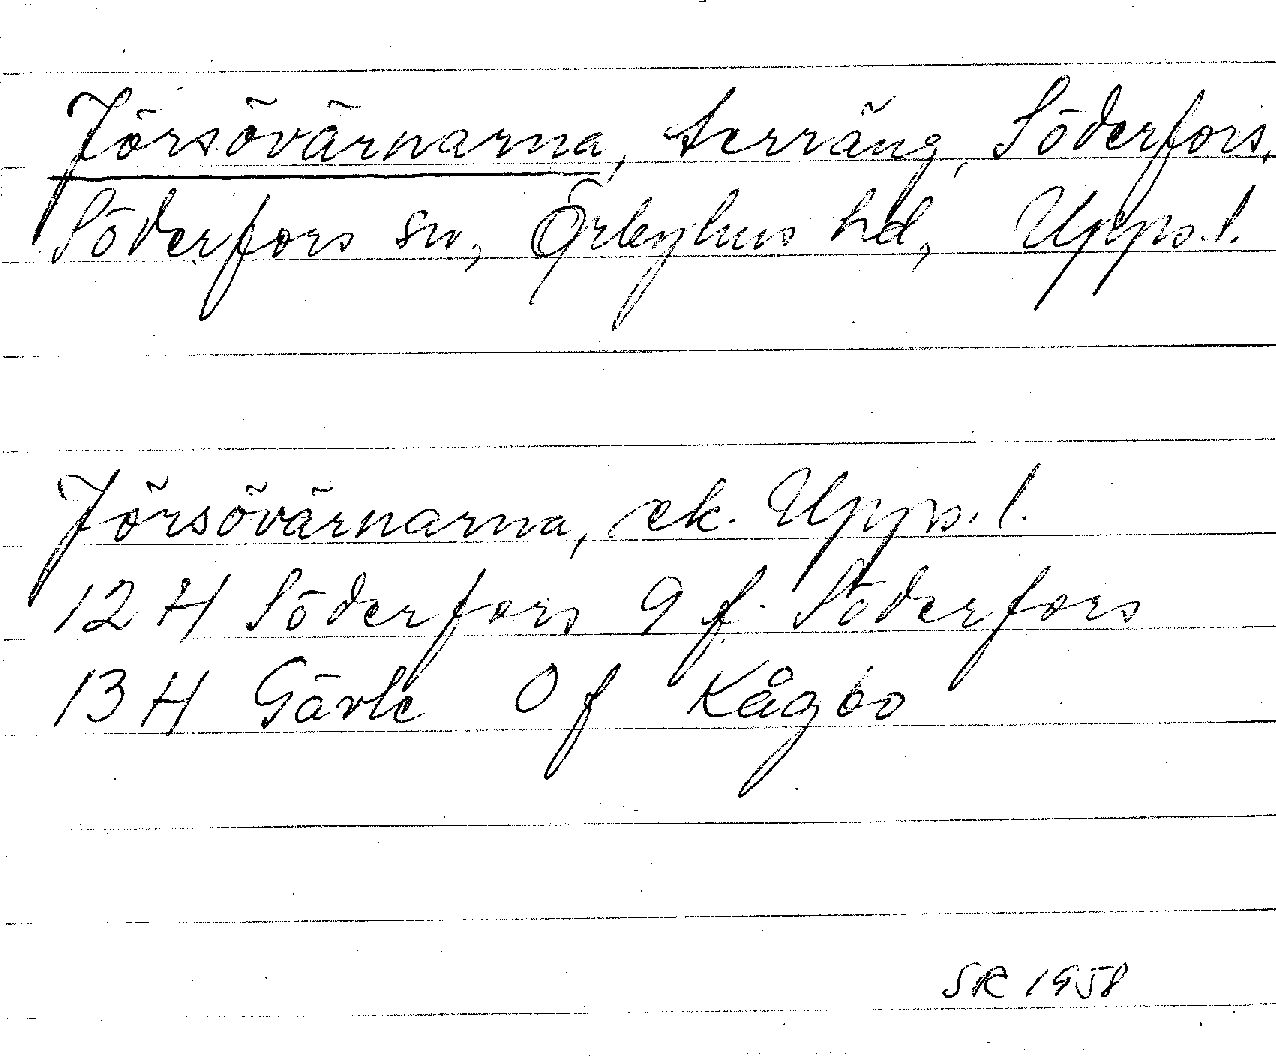 Jörsövärnarna, terräng, Söderfors,
Söderfors sn, Örbyhus hd, Upps. l.
Jörsövärnarna, ek. Upps. l.
12 H Söderfors 9 f Söderfors
13 H Gävle 0 f Kågbo
SR 1958